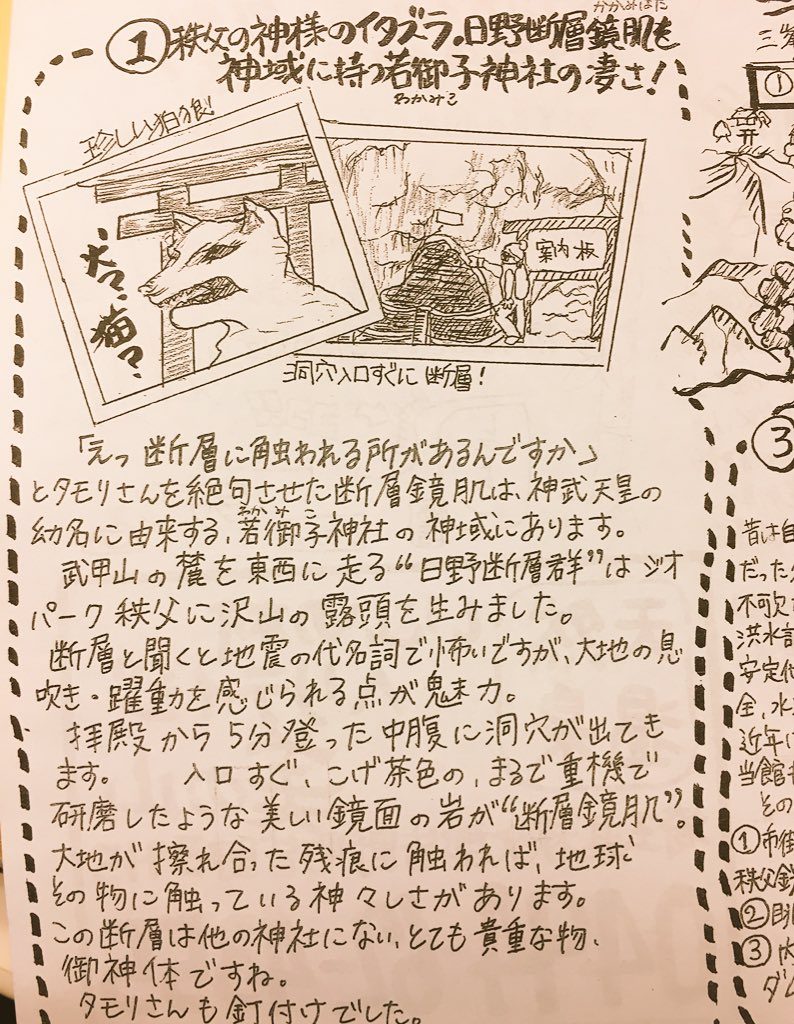 ①秩父の神様のイタズラ。日野断層鏡肌を
かがみはだ
神域に持つ若御子神社の凄さ!
わかみこ
珍しい狛狼
犬?、猫?
案内板
洞穴入口すぐに断層!
「えっ断層に触われる所があるんですか」
とタモリさんを絶句させた断層鏡肌は、神武天皇の
わかみこ
幼名に由来する、若御子神社の神域にあります。
武甲山の麓を東西に走る“日野断層群”はジオ
パーク秩父に沢山の露頭を生みました。
断層と聞くと地震の代名詞で怖いですが、大地の息
吹き・躍動を感じられる点が魅力。
拝殿から5分登った中腹に洞穴が出てき
ます。 入口すぐ、こげ茶色の、まるで重機で
研磨したような美しい鏡面の岩が“断層鏡肌”。
大地が擦れ合った残痕に触われば、地球
その物に触っている神々しさがあります。
この断層は他の神社にない、とても貴重な物、
御神体ですね。
タモリさんも釘付けでした。
三峯
①
③
昔は自
だった
不可欠
洪水
安定
金、水
近年に
当館も
その
①市街
秩父鉄
②
③内
ダム